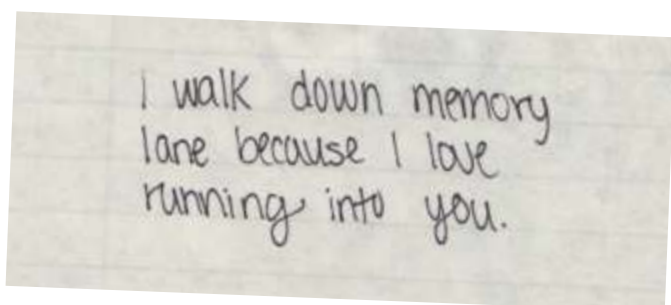 I walk down memory
lane because I love
running into you.